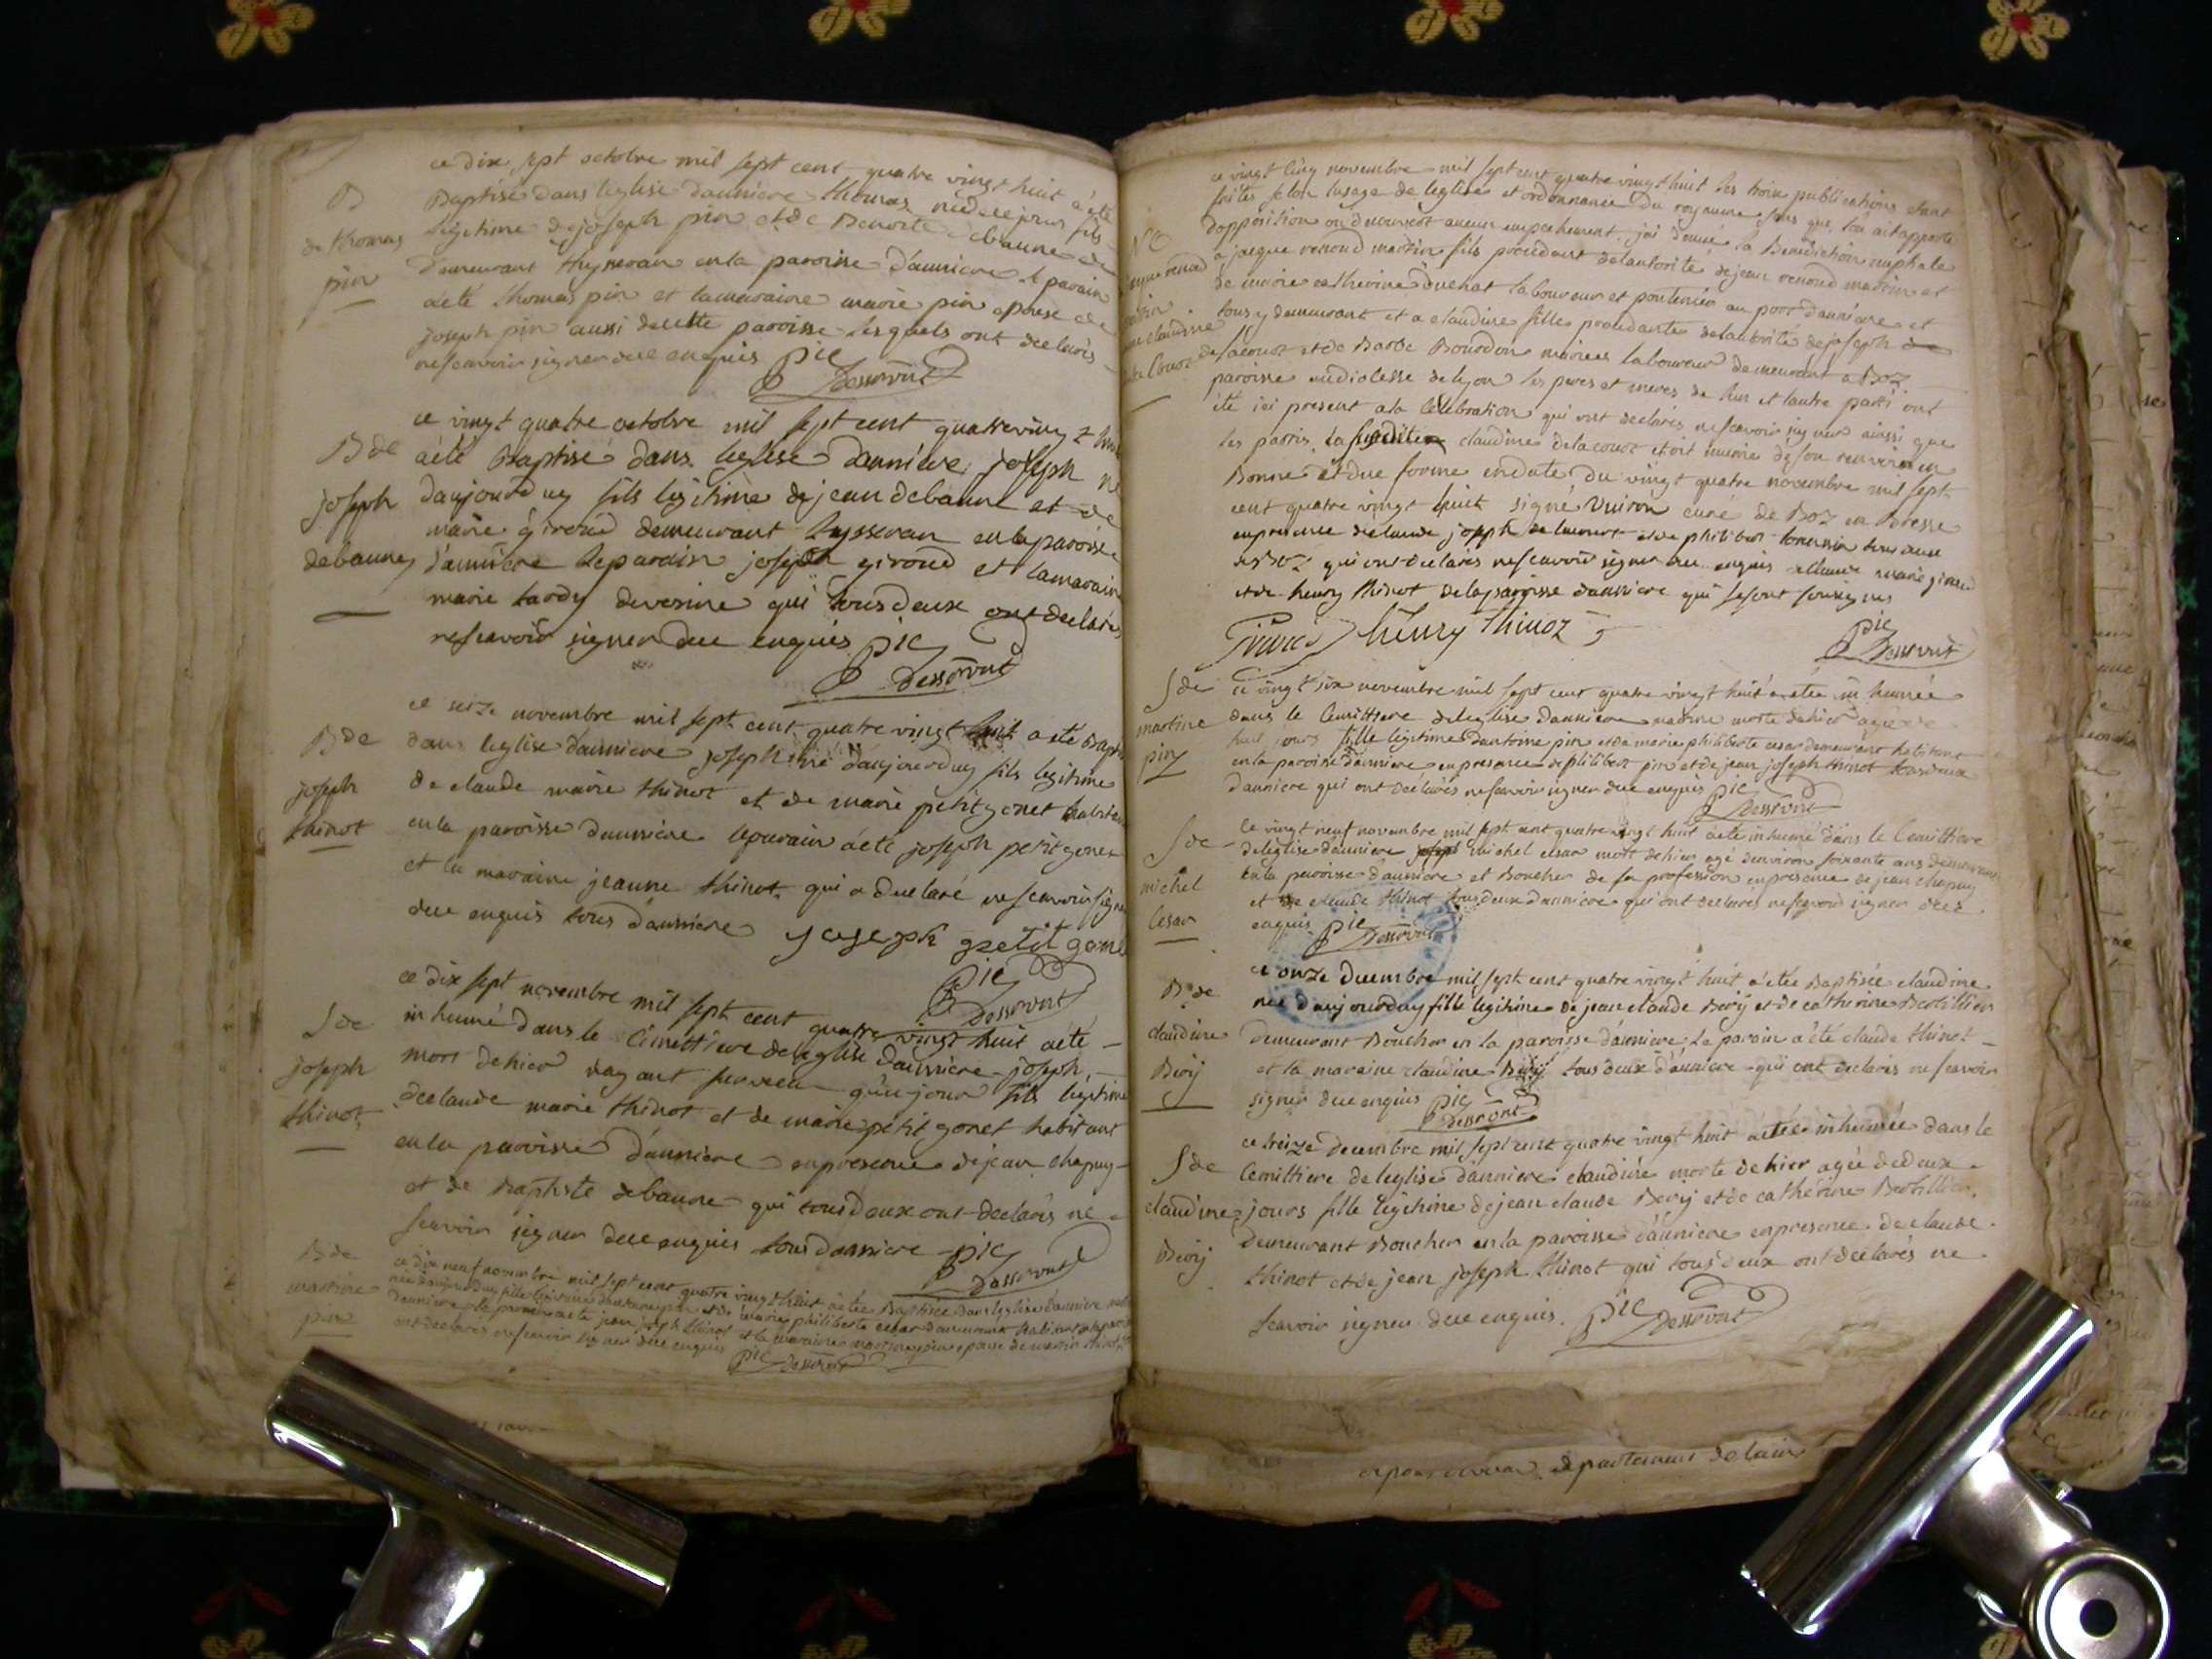 ce dix sept octobre mil sept cent quatre vingt huit a été
B
Baptisé dans leglise dauniere thomas né de ce jour fils
de thomas
legitime de joseph pin et de Benoite debaune
pin
demeurant en la paroisse d'auniere le parain
a été thomas pin et la maraine marie pin epouse de
joseph pin aussi de cette paroisse lesquels ont declarés
ne scavoir signer dee enquis pic
Desservant
ce vingt quatre octobre mil sept cent quatre vingt huit
B de
a été Baptisé dans leglise d'auniere joseph né
joseph
daujourduy fils legitime de jean debaune et de
debaune
marie giroud demeurant en la paroisse
d'auniere le parain joseph giroud et la maraine
marie tardy qui tous deux ont declarés
ne scavoir signer dee enquis pic
Desservant
ce seize novembre mil sept cent quatre vingt huit a été Bap
B de
dans leglise d'auniere joseph né daujourduy fils legitime
joseph
de claude marie thinot et de marie petit gonet habitant
thinot
en la paroisse dauniere le parain a été joseph petit gonet
et la maraine jeanne thinot qui a declaré ne scavoir signer
dee enquis tous dauniere joseph petit gone
pic
Desservant
ce dix sept novembre mil sept cent quatre vingt huit a été
S de
inhumé dans le cimettiere de leglise dauniere joseph
joseph
mort de hier nayant survecu qu'un jour fils legitime
thinot
de claude marie thinot et de marie petit gonet habitant
en la paroisse d'auniere en presence de jean chapuy
et de Baptiste debaune qui tous deux ont declarés ne
scavoir signer dee enquis tous dauniere pic
Desservant
B de
martine
pin
ce dix neuf novembre mil sept cent quatre vingt huit a été Baptisée dans leglise dauniere
née daujourduy fille legitime dantoine pin et de marie philiberte cesar demeurant habitant
dauniere le parain a été jean joseph thinot et la maraine martine pin epouse de
ont declarés ne scavoir signer dee enquis
pic Desservant
ce vingt cinq novembre mil sept cent quatre vingt huit les trois publications etant
faites selon lusage de leglise et ordonnance du royaume sans que lon ait apporté
dopposition ou decouvert aucun empechement jai donné la Benediction nuptiale
a jacque renoud martin fils procedant de lautorité de jean renoud martin et
de marie catherine duchat laboureur et pontenier au port dauniere et
tous y demeurant et a claudine fille procedante de lautorité de joseph de
lacour et de Barbe Bourdon mariés laboureur demeurant a Boz
paroisse au diocesse de lyon les peres et meres de lun et lautre parti ont
été ici present a la celebration qui ont declarés ne scavoir signer ainsi que
les partis la susdite claudine delacour etoit munie de son renvoi en
Bonne et due forme en date du vingt quatre novembre mil sept
cent quatre vingt huit signé curé de Boz en Bresse
en presence de claude joseph de lacour et de philibert tous deux
de Boz qui ont declarés ne scavoir signer dee enquis claude marie giroud
et de henry thinot de la paroisse dauniere qui se sont souxignes
henry thinoz
pic
Desservant
S de
ce vingt six novembre mil sept cent quatre vingt huit a été inhumée
martine
dans le cemittiere de leglise dauniere martine morte de hier agée de
pin
huit jours fille legitime dantoine pin et de marie philiberte cesar demeurant habitant
en la paroisse dauniere en presence de philibert pin et de jean joseph thinot tous deux
dauniere qui ont declarés ne scavoir signer dee enquis pic
Desservant
S de
ce vingt neuf novembre mil sept cent quatre vingt huit a été inhumé dans le cemittiere
michel
de leglise dauniere michel cesar mort de hier agé denviron soixante ans demeurant
cesar
en la paroisse dauniere et Boucher de sa profession en presence de jean chapuy
et de claude thinot tous deux dauniere qui ont declarés ne scavoir signer dee
enquis pic
Desservant
B de
ce onze decembre mil sept cent quatre vingt huit a été Baptisée claudine
claudine
née daujourduy fille legitime de jean claude Bevy et de catherine Berbillier
Bevy
demeurant Boucher en la paroisse dauniere le parain a été claude thinot
et la maraine claudine Bevy tous deux dauniere qui ont declarés ne scavoir
signer dee enquis pic
Desservant
S de
ce treize decembre mil sept cent quatre vingt huit a été inhumée dans le
claudine
cemittiere de leglise dauniere claudine morte de hier agée de deux
Bevy
jours fille legitime de jean claude Bevy et de catherine Berbillier
demeurant Boucher en la paroisse dauniere en presence de claude
thinot et de jean joseph thinot qui tous deux ont declarés ne
scavoir signer dee enquis pic
Desservant
departement de lain